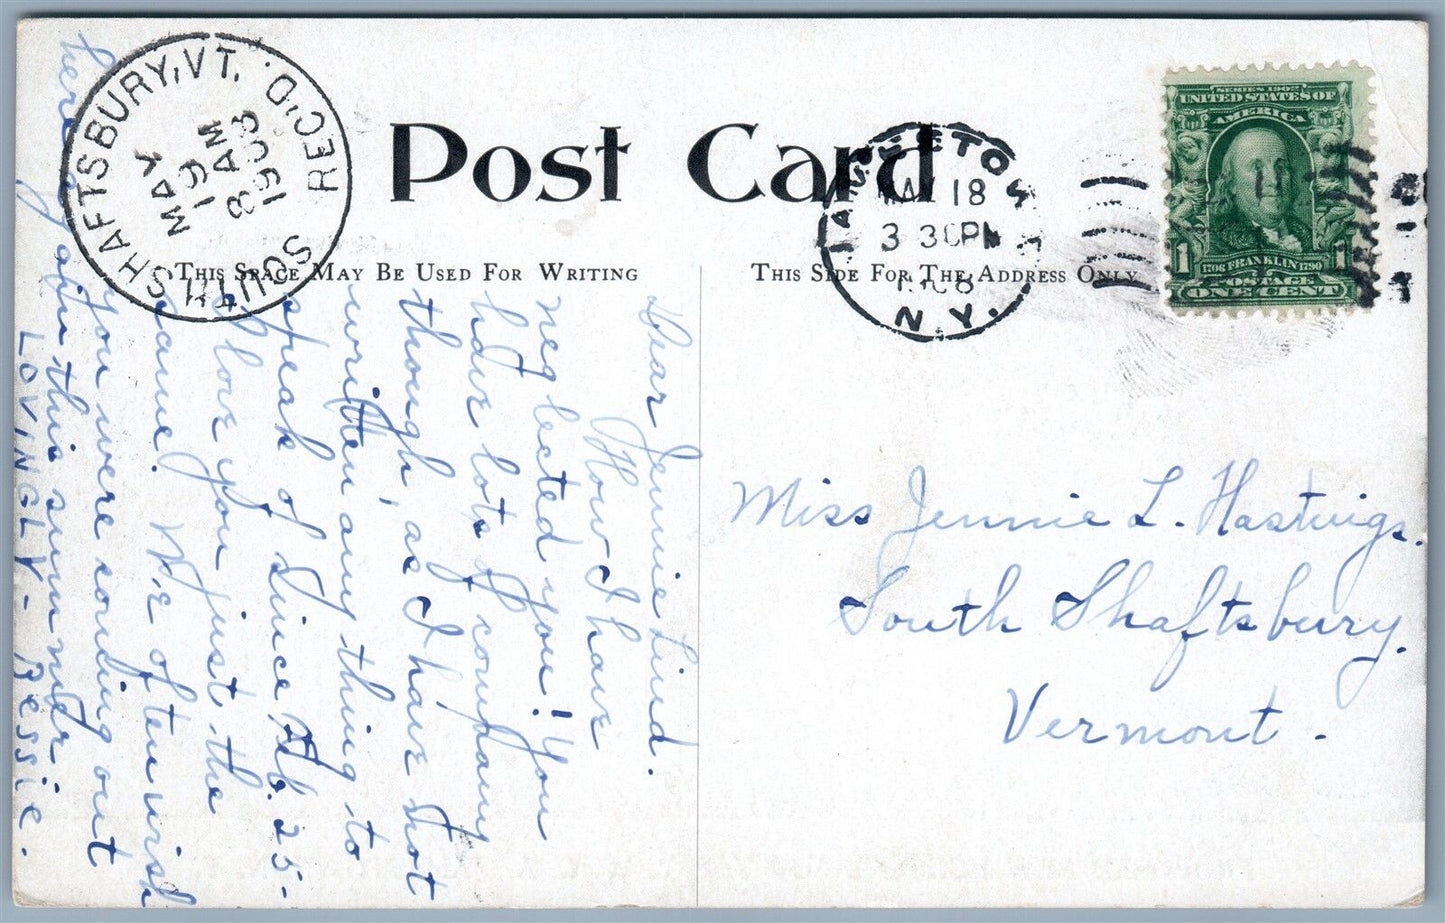 Post Card
THIS SPACE MAY BE USED FOR WRITING
THIS SIDE FOR THE ADDRESS ONLY
SOUTH SHAFTSBURY, VT. REC'D.
MAY
19
8 AM
1908
MAY 18
3 30PM
1908
N.Y.
SERIES 1902
UNITED STATES OF
AMERICA
1 1
1706 FRANKLIN 1790
POSTAGE
ONE CENT
Dear Jennie kind.
How I have
neglected you! You
have lots of company
though, as I have not
written any thing to
speak of since Feb. 25-
I love you just the
same. We often wish
you were coming out
here again this summer
LOVINGLY - Bessie.
Miss Jennie L. Hastings.
South Shaftsbury.
Vermont.